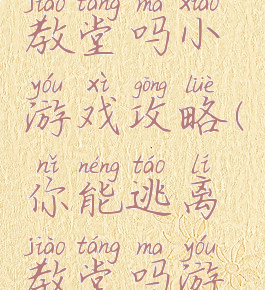 jiào táng ma xiǎo
教堂吗小
yóu xì gōng lüè
游戏攻略(
nǐ néng táo lí
你能逃离
jiào táng ma yóu
教堂吗游